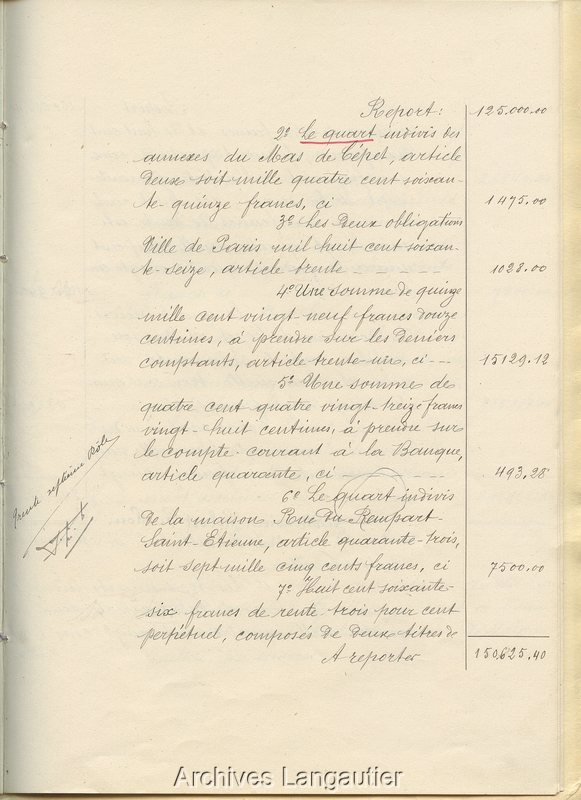 Report: 125.000.00
2º Le quart indivis des
annexes du Mas de Cépet, article
deux soit mille quatre cent soixan-
te-quinze francs, ci 1475.00
3º Les deux obligations
Ville de Paris mil huit cent soixan-
te-seize, article trente 1028.00
4º Une somme de quinze
mille cent vingt neuf francs douze
centimes, à prendre sur les deniers
comptants, article trente un, ci --- 15129.12
5º Une somme de
quatre cent quatre vingt-treize francs
vingt-huit centimes, à prendre sur
le compte-courant à la Banque,
article quarante, ci 493.28
6º Le quart indivis
de la maison Rue du Rempart-
Saint-Etienne, article quarante-trois,
soit sept mille cinq cents francs, ci 7500.00
7º Huit cent soixante-
six francs de rente trois pour cent
perpétuel, composés de deux titres de
A reporter 150.625.40
trente septième Rôle
Archives Langautier